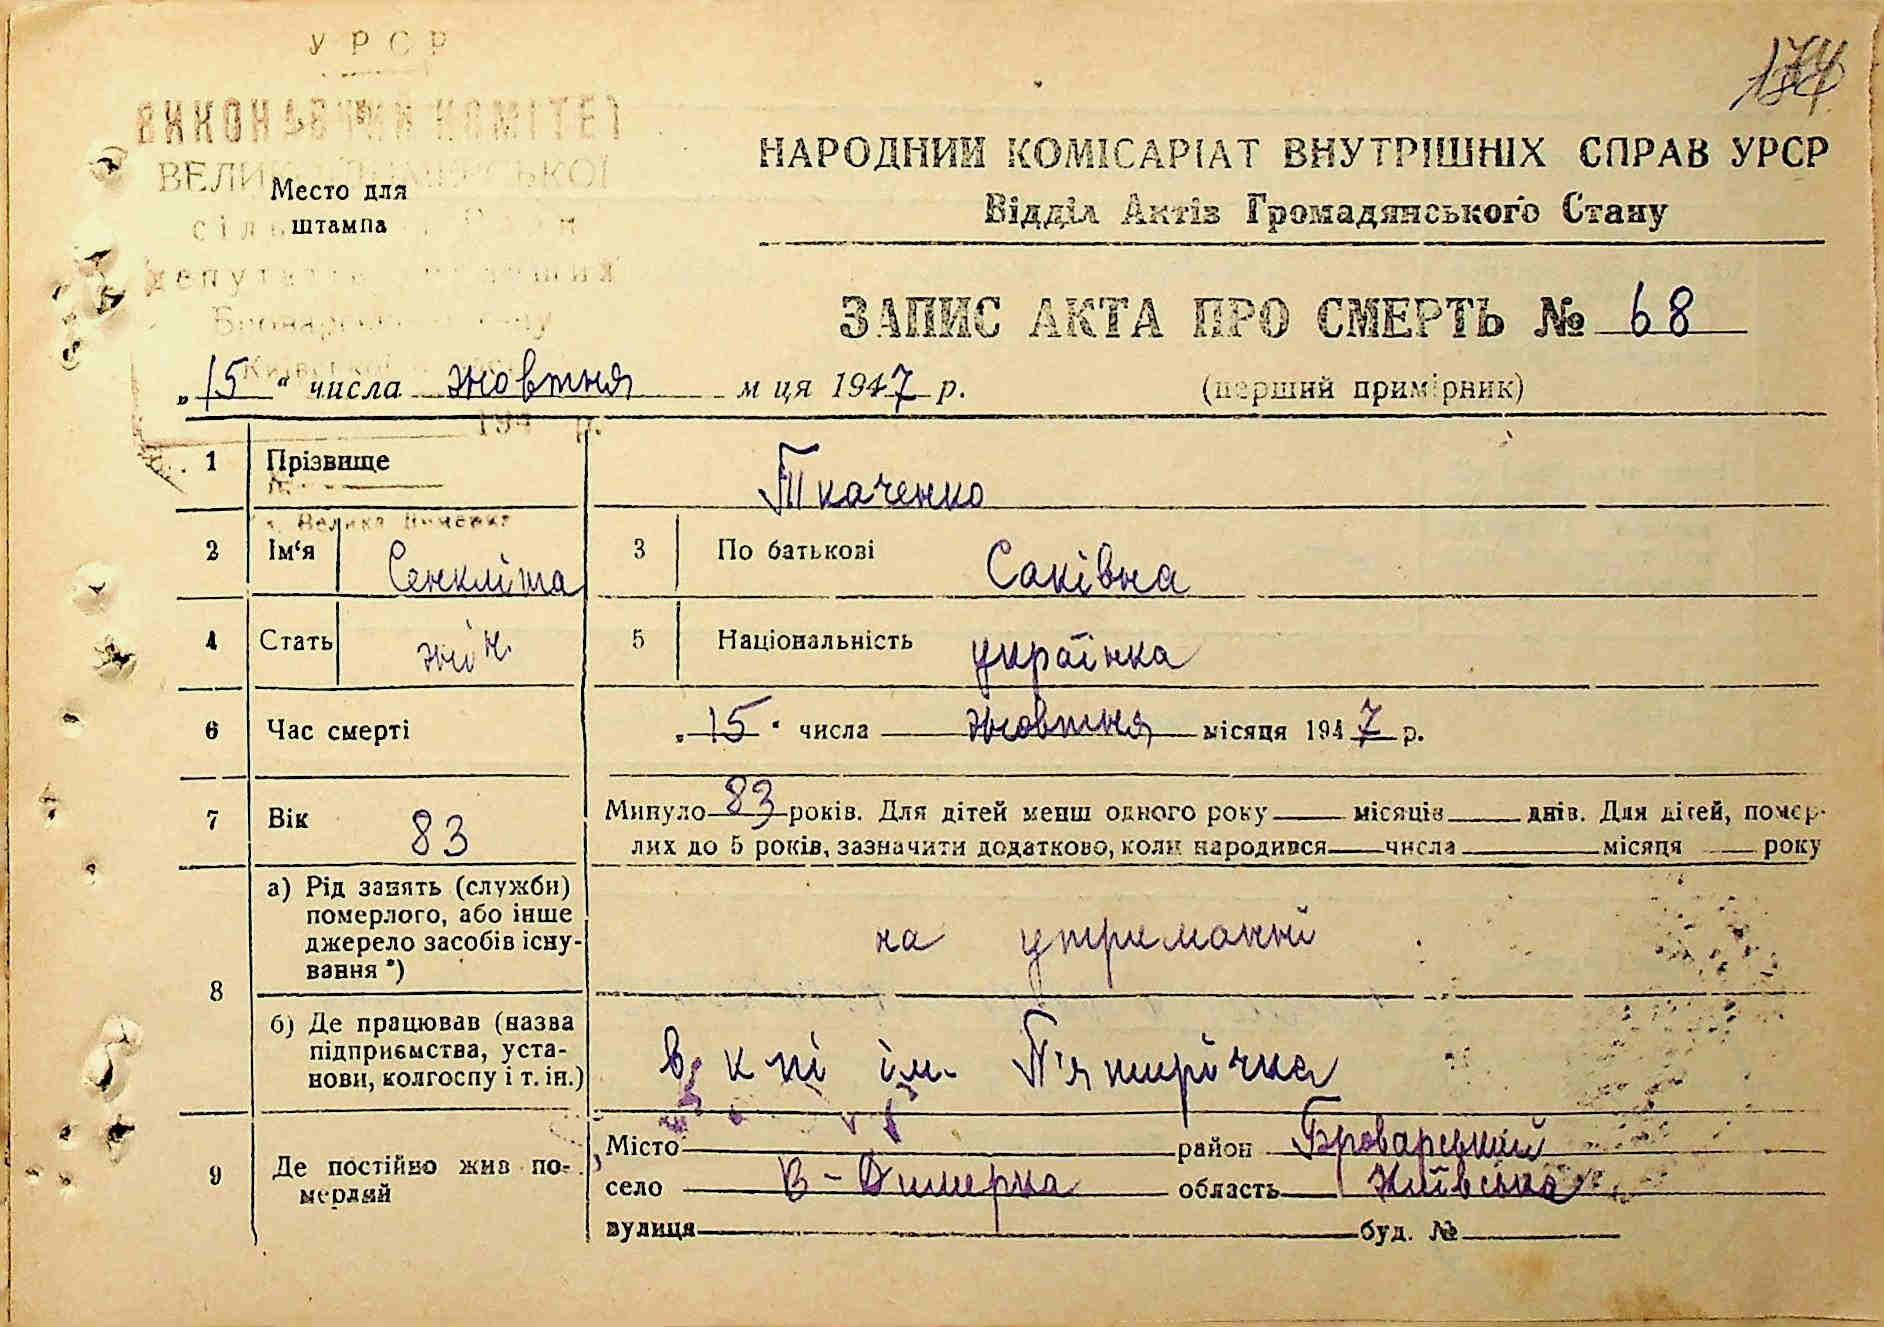 УРСР
ВИКОНАВЧИЙ КОМІТЕТ
ВЕЛИКОДИМЕРСЬКОЇ
Место для
штампа
НАРОДНИЙ КОМІСАРІАТ ВНУТРІШНІХ СПРАВ УРСР
Відділ Актів Громадянського Стану
ЗАПИС АКТА ПРО СМЕРТЬ № 68
„15“ числа жовтня м ця 1947 р.
(перший примірник)
194 р.
1 Прізвище Ткаченко
с. Велика Димерка
2 Ім‘я Сенкліта 3 По батькові Саківна
4 Стать жін. 5 Національність українка
6 Час смерті „15“ числа жовтня місяця 1947 р.
7 Вік 83 Минуло 83 років. Для дітей менш одного року місяців днів. Для дітей, помер-
лих до 5 років, зазначити додатково, коли народився числа місяця року
8 а) Рід занять (служби)
померлого, або інше
джерело засобів існу-
вання *)
на утриманні
б) Де працював (назва
підприємства, уста-
нови, колгоспу і т. ін.)
в к пі ім. П'ятирічка
9 Де постійно жив по-
мерлий
Місто район Броварський
село В-Димерка область Київська
вулиця буд. №